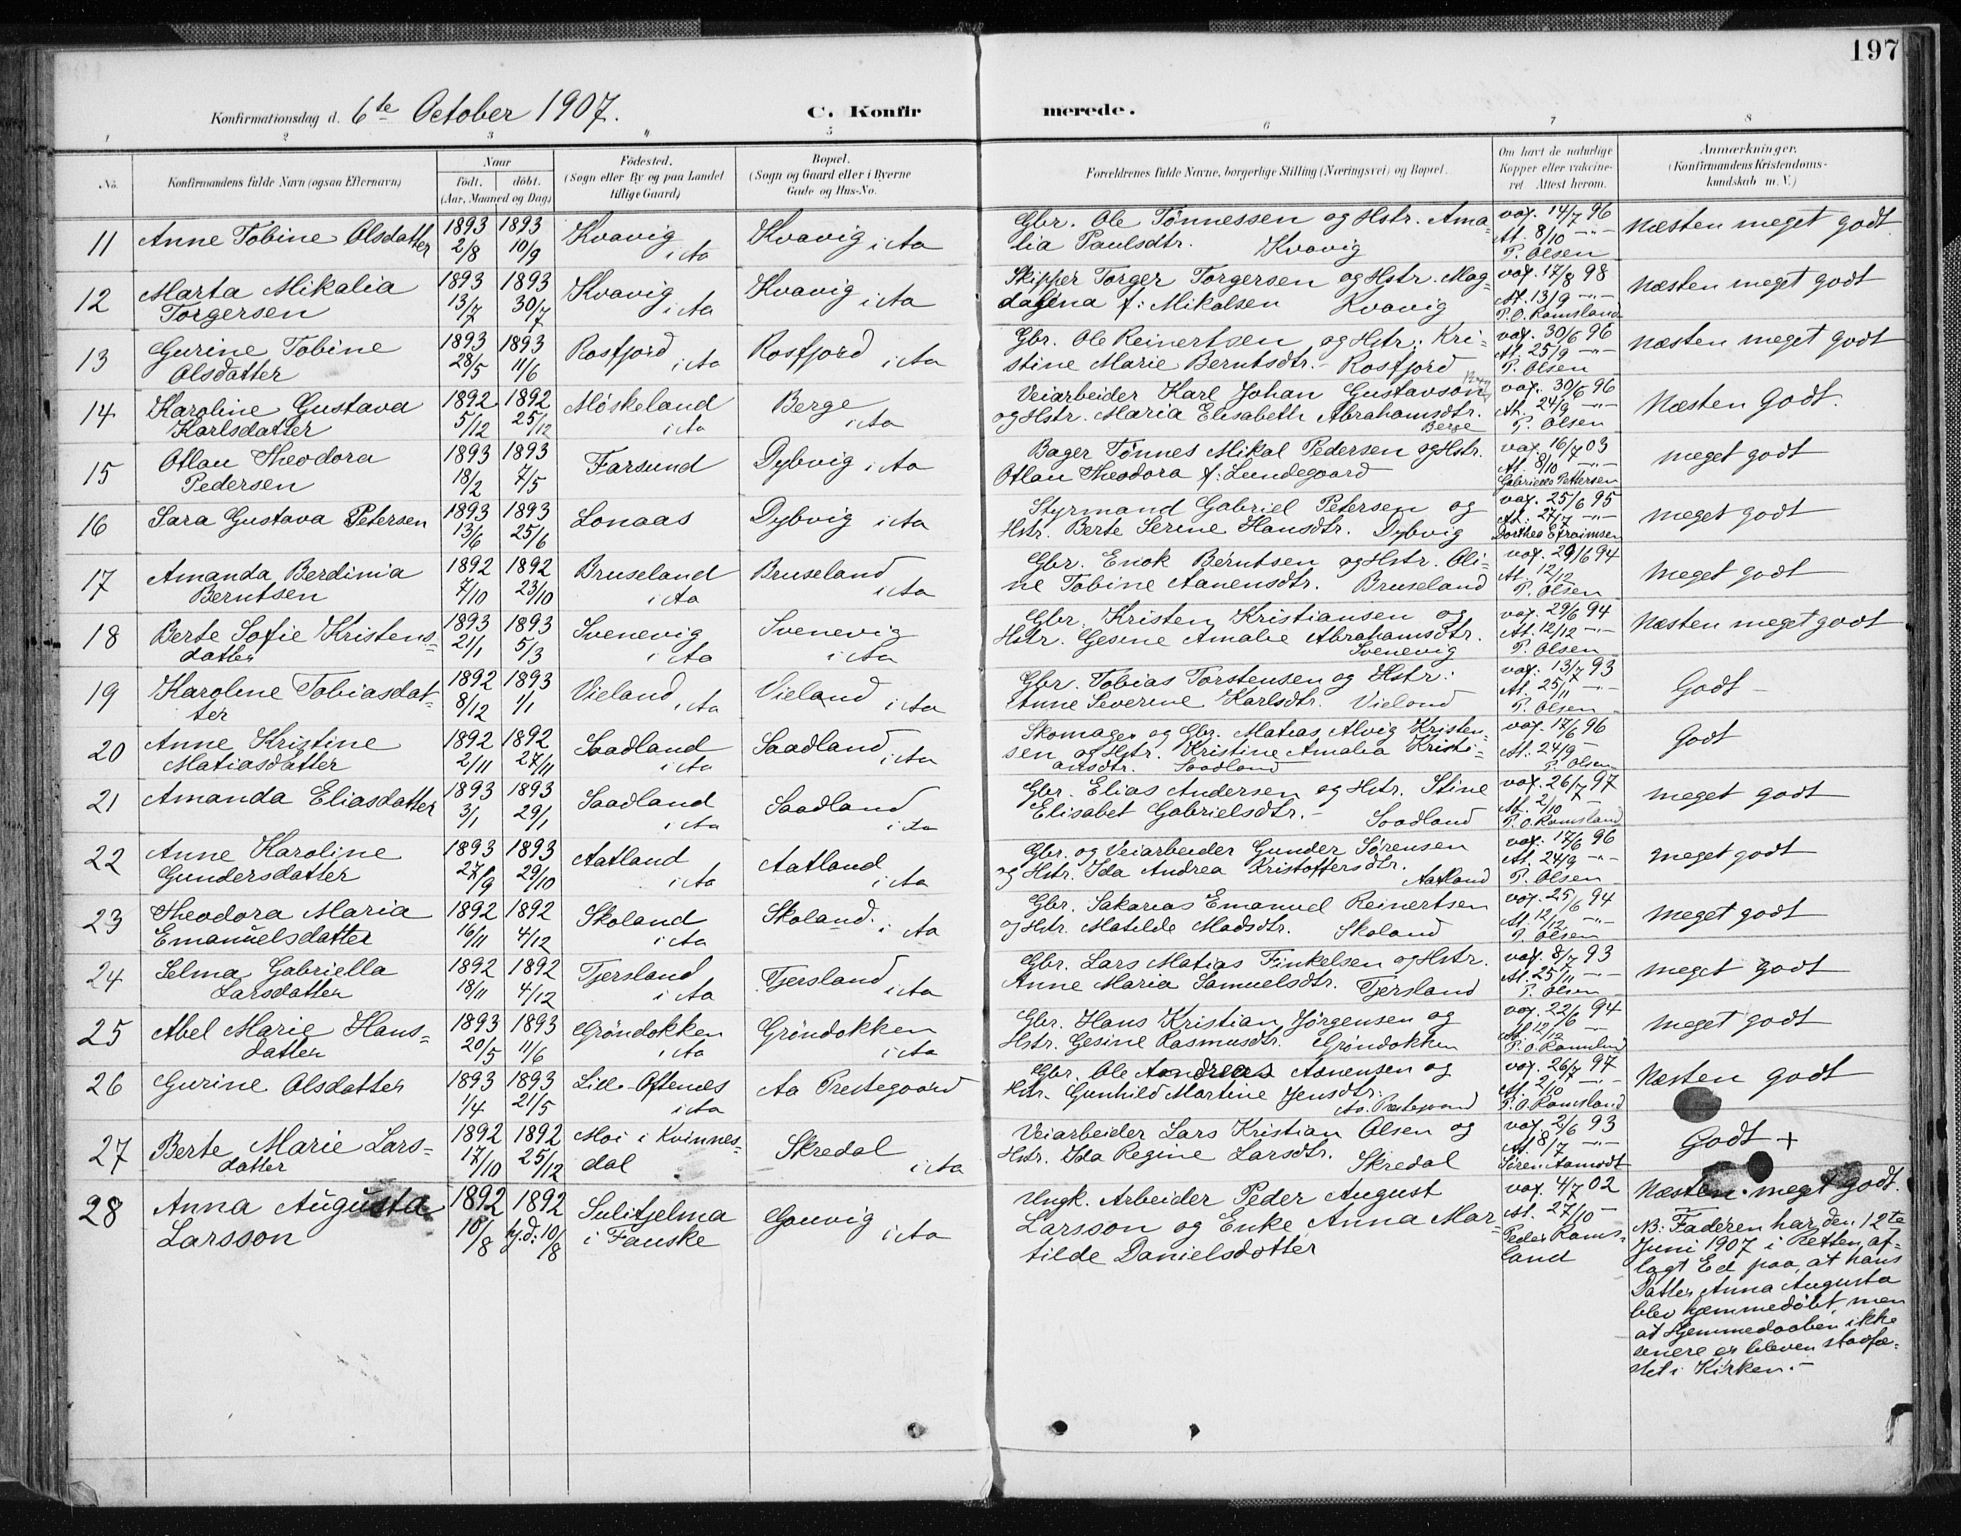 197
Konfirmationsdag d. 6te October 1907. C. Konfirmerede.
1 2 3 4 5 6 7 8
No. Konfirmandens fulde Navn (ogsaa Efternavn) Naar født. døbt. (Aar, Maaned og Dag) Fødested. (Sogn eller By og paa Landet tillige Gaard) Bopæl. (Sogn og Gaard eller i Byerne Gade og Hus-No. Forældrenes fulde Navne, borgerlige Stilling (Næringsvei) og Bopæl. Om havt de naturlige Kopper eller vakcineret. Attest herom. Anmærkninger. (Konfirmandens Kristendomskundskab m. V.)
11 Anne Tobine Olsdatter 1893 2/8 1893 10/9 Kvavig i Aa Kvavig i Aa Gbr. Ole Tønnessen og Hstr. Amalia Paulsdtr. Kvavig vax. 14/7 96 At. 8/10 -"- P. Olsen Næsten meget godt.
12 Marta Mikalia Torgersen 1893 13/7 1893 30/7 Kvavig i Aa Kvavig i Aa Skipper Torger Torgersen og Hstr. Magdalena f: Mikalsen Kvavig vax. 17/8 98 At. 13/9 -"- P. O. Ramsland Næsten meget godt
13 Gurine Tobine Olsdatter 1893 28/5 1893 11/6 Rosfjord i Aa Rosfjord i Aa Gbr. Ole Reinertsen og Hstr: Kristine Marie Berntsdtr. - Rosfjord vax. 30/6 96 At. 25/9 -"- P. Olsen Næsten meget godt
14 Karoline Gustava Karlsdatter 1892 5/12 1892 25/12 Møskeland i Aa Berge i Aa Veiarbeider Karl Johan Gustavson og Hstr. Maria Elisabeth Abrahamsdtr. Berge vax. 30/6 96 At. 24/9 -"- P. Olsen Næsten Godt.
15 Otlau Theodora Pedersen 1893 18/2 1893 7/5 Farsund Dybvig i Aa Bager Tønnes Mikal Pedersen og Hstr. Otlau Theodora f: Lundegaard vax. 16/7 03 At. 8/10 -"- Gabrielle Pettersen meget godt
16 Sara Gustava Petersen 1893 13/6 1893 25/6 Lonaas Dybvig i Aa Styrmand Gabriel Petersen og Hstr. Berte Serine Hansdtr. Dybvig vax. 25/6 95 At. 27/7 -"- Dorthea Efraimsen meget godt
17 Amanda Berdinia Berntsen 1892 7/10 1892 23/10 Bruseland i Aa Bruseland i Aa Gbr. Enok Berntsen og Hstr. Oline Tobine Aanensdtr. Bruseland vax. 29/6 94 At. 12/12 P. Olsen Meget godt
18 Berte Sofie Kristensdatter 1893 21/1 1893 5/3 Svenevig i Aa Svenevig i Aa Gbr. Kristen Kristiansen og Hstr. Gesine Amalie Abrahamsdtr. Svenevig vax. 29/6 94 At. 12/12 -"- P. Olsen Næsten meget godt
19 Karoline Tobiasdatter 1892 8/12 1893 1/1 Vieland i Aa Vieland i Aa Gbr. Tobias Torstensen og Hstr: Anne Severine Karlsdtr. Vieland vax. 13/7 93 At. 25/11 -"- P. Olsen Godt -
20 Anne Kristine Matiasdatter 1892 2/11 1892 27/11 Saadland i Aa Saadland i Aa Skomager og Gbr. Matias Alvig Kristensen og Hstr. Kristine Amalia Kristiansdtr. Saadland vax. 17/6 96 At. 24/9 - P. Olsen Godt
21 Amanda Eliasdatter 1893 3/1 1893 29/1 Saadland i Aa Saadland i Aa Gbr. Elias Andersen og Hstr. Stine Elisabet Gabrielsdtr. - Saadland vax. 26/7 97 At. 2/10 - P. O. Ramsland meget godt
22 Anne Karoline Gundersdatter 1893 27/9 1893 29/10 Aatland i Aa Aatland i Aa Gbr. og Veiarbeider Gunder Sørensen og Hstr. Ida Andrea Kristoffersdtr. Aatland vax. 17/6 96 At. 24/9 -"- P. Olsen meget godt
23 Theodora Maria Emanuelsdatter 1892 16/11 1892 4/12 Skoland i Aa Skoland. i Aa Gbr. Sakarias Emanuel Reinertsen og Hstr. Matilde Madsdtr. Skoland vax. 25/6 94 At. 12/12 -"- P. Olsen meget godt
24 Selma Gabriella Larsdatter 1892 18/11 1892 4/12 Tjersland i Aa Tjersland i Aa Gbr. Lars Matias Finkelsen og Hstr. Anne Maria Samuelsdtr. Tjersland vax. 8/7 93 At. 25/11 -"- P. Olsen meget godt
25 Abel Marie Hansdatter 1893 20/5 1893 11/6 Grøndokken i Aa Grøndokken i Aa Gbr. Hans Kristian Jørgensen og Hstr. Gesine Rasmusdtr. Grøndokken vax. 22/6 94 At 12/12 - P. O. Ramsland meget godt
26 Gurine Olsdatter 1893 1/4 1893 21/5 Lille Oftenes i Aa Aa Prestegaard Gbr. Ole Andreas Aanensen og Hstr. Gunhild Martine Jensdtr. Aa. Prestegaard vax. 26/7 97 At. 2/10 -"- P. O. Ramsland Næsten godt
27 Berte Marie Larsdatter 1892 17/10 1892 25/12 Moi i Kvinnesdal Skredal i Aa Veiarbeider Lars Kristian Olsen og Hstr. Ida Regine Larsdtr. Skredal vax. 2/6 93 At 8/7 -"- Søren Aamodt Godt +
28 Anna Augusta Larsson 1892 10/8 1892 hj.d. 10/8 Sulitjelma i Fauske Gouvig i Aa Ungk. Arbeider Peder August Larsson og Enke Anna Martilde Danielsdotter vax. 4/7 02 At. 27/10 - Peder Ramsland Næsten meget godt.
NB: Faderen har den 12te
Juni 1907 i Retten af-
lagt Ed paa, at hans
Datter Anna Augusta
blev hjemmedøbt, men
at Hjemmedaaben ikke
senere er bleven stadfæ-
stet i Kirken. -